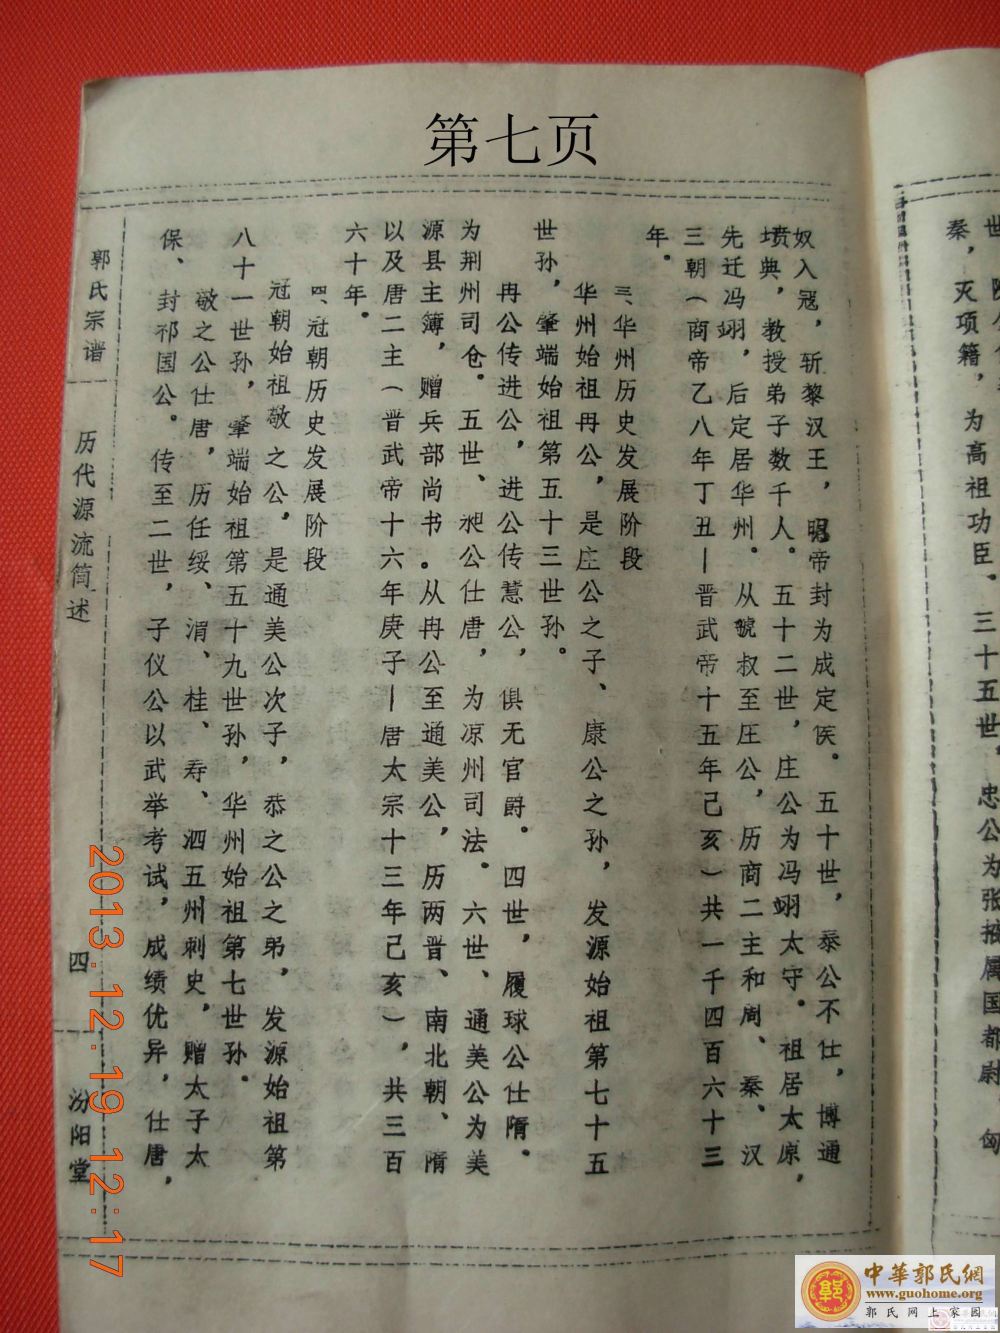 第七页
奴入冦，斩黎汉王，明帝封为成定医。五十世，泰公不仕，博通
坟典，教授弟子数千人。五十二世，庄公为冯翊太守。祖居太原，
先迁冯翊，后定居华州。从虢叔至庄公，历商二主和周、秦、汉
三朝（商帝乙八年丁丑—晋武帝十五年己亥）共一千四百六十三
年。
三、华州历史发展阶段
华州始祖冉公，是庄公之子、康公之孙，发源始祖第七十五
世孙，肇端始祖第五十三世孙。
冉公传进公，进公传慧公，俱无官爵。四世，履球公仕隋。
为荆州司仓。五世、昶公仕唐，为凉州司法。六世、通美公为美
源县主簿，赠兵部尚书。从冉公至通美公，历两晋、南北朝、隋
以及唐二主（晋武帝十六年庚子—唐太宗十三年己亥），共三百
六十年。
四、冠朝历史发展阶段
冠朝始祖敬之公，是通美公次子，恭之公之弟，发源始祖第
八十一世孙，肇端始祖第五十九世孙，华州始祖第七世孙。
敬之公仕唐，历任绥、渭、桂、寿、泗五州刺史，赠太子太
保、封祁国公。传至二世，子仪公以武举考试，成绩优异，仕唐，
郭氏宗谱
历代源流简述
四
汾阳堂
秦，灭项籍，为高祖功臣。三十五世，忠公为张掖属国都尉，匈
2013.12.19 12:17
中華郭氏網
www.guohome.org
郭氏网上家园